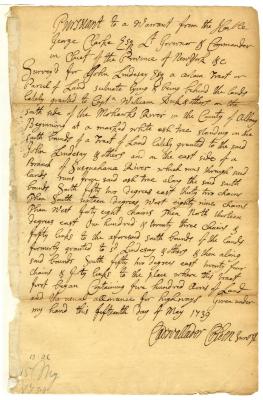 Pursuant to a Warrant from the Honble
George Clarke Esq Lt Governor & Commander
in Chief of the Province of New York &c
Surveyed for John Lindesay Esq a certain Tract or
Parcel of Land scituate lying & being behind the Lands
lately granted to Capt William & others on the
south side of the Mohawks River in the County of Albany
Beginning at a marked white ash tree standing in the
South bounds of a Tract of Land lately granted to the said
John Lindesay & others in on the east side of a
Branch of Susquehana River which runs through said
Lands runs from said ash tree along the said south
bounds South fifty two degrees east thirty two chains
Then South sixteen degrees West eighty nine chains
Then West forty eight chains Then North thirteen
degrees east One hundred & twenty three chains &
fifty links to the aforesaid South bounds of the Lands
formerly granted to Lindesay & others & then along
said bounds South fifty two degrees east twenty four
chains & fifty links to the place where this tract
first began Containing five hundred Acres of Land
and the usual allowance for highways Given under
my hand this fifteenth day of May 1739
Cadwallader Colden Survr
15 May
1739